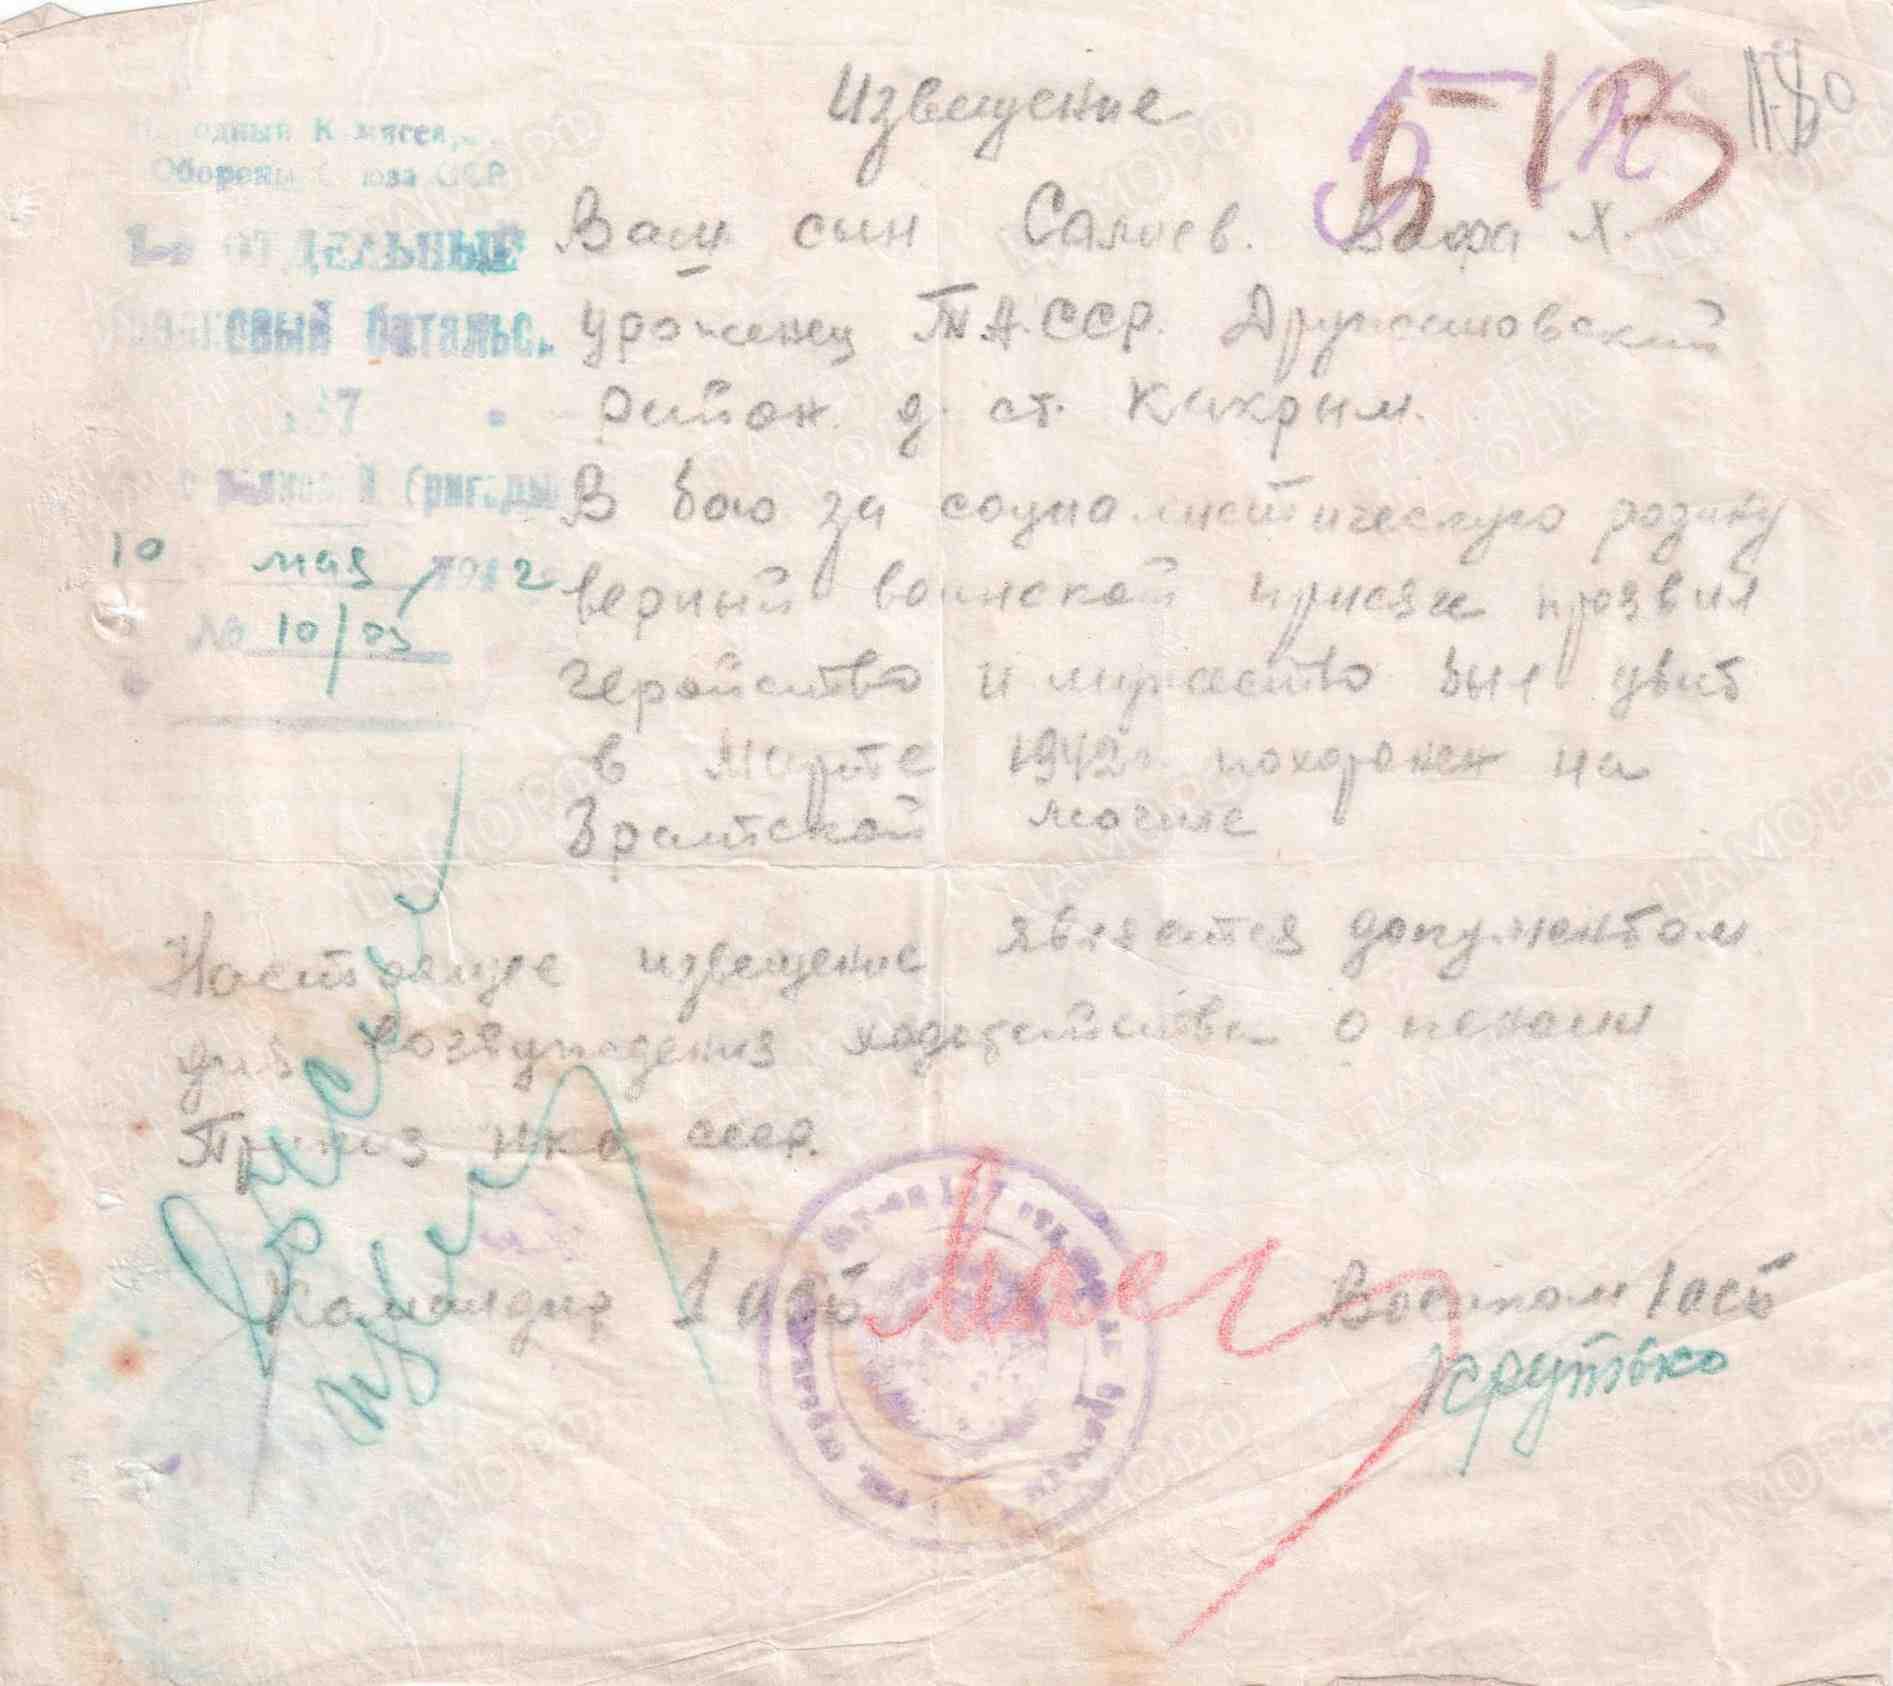 Извещение
Б-13
Народный Комиссар
Обороны Союза ССР
ОТДЕЛЬНЫЙ
батальон
бригады
10 мая 1942
№ 10/03
Ваш сын Салиев Х.
уроженец ТАССР. Дружановский
район д. ст. Какрым.
В бою за социалистическую родину
верный воинской присяге проявил
геройство и мужество был убит
в Марте 1942 г. похоронен на
Братской могиле
Настоящее извещение является документом
для возбуждения ходатайства о пенсии
Приказ НКО СССР.
Командир 1 осб
Военком 1 осб
Крутько